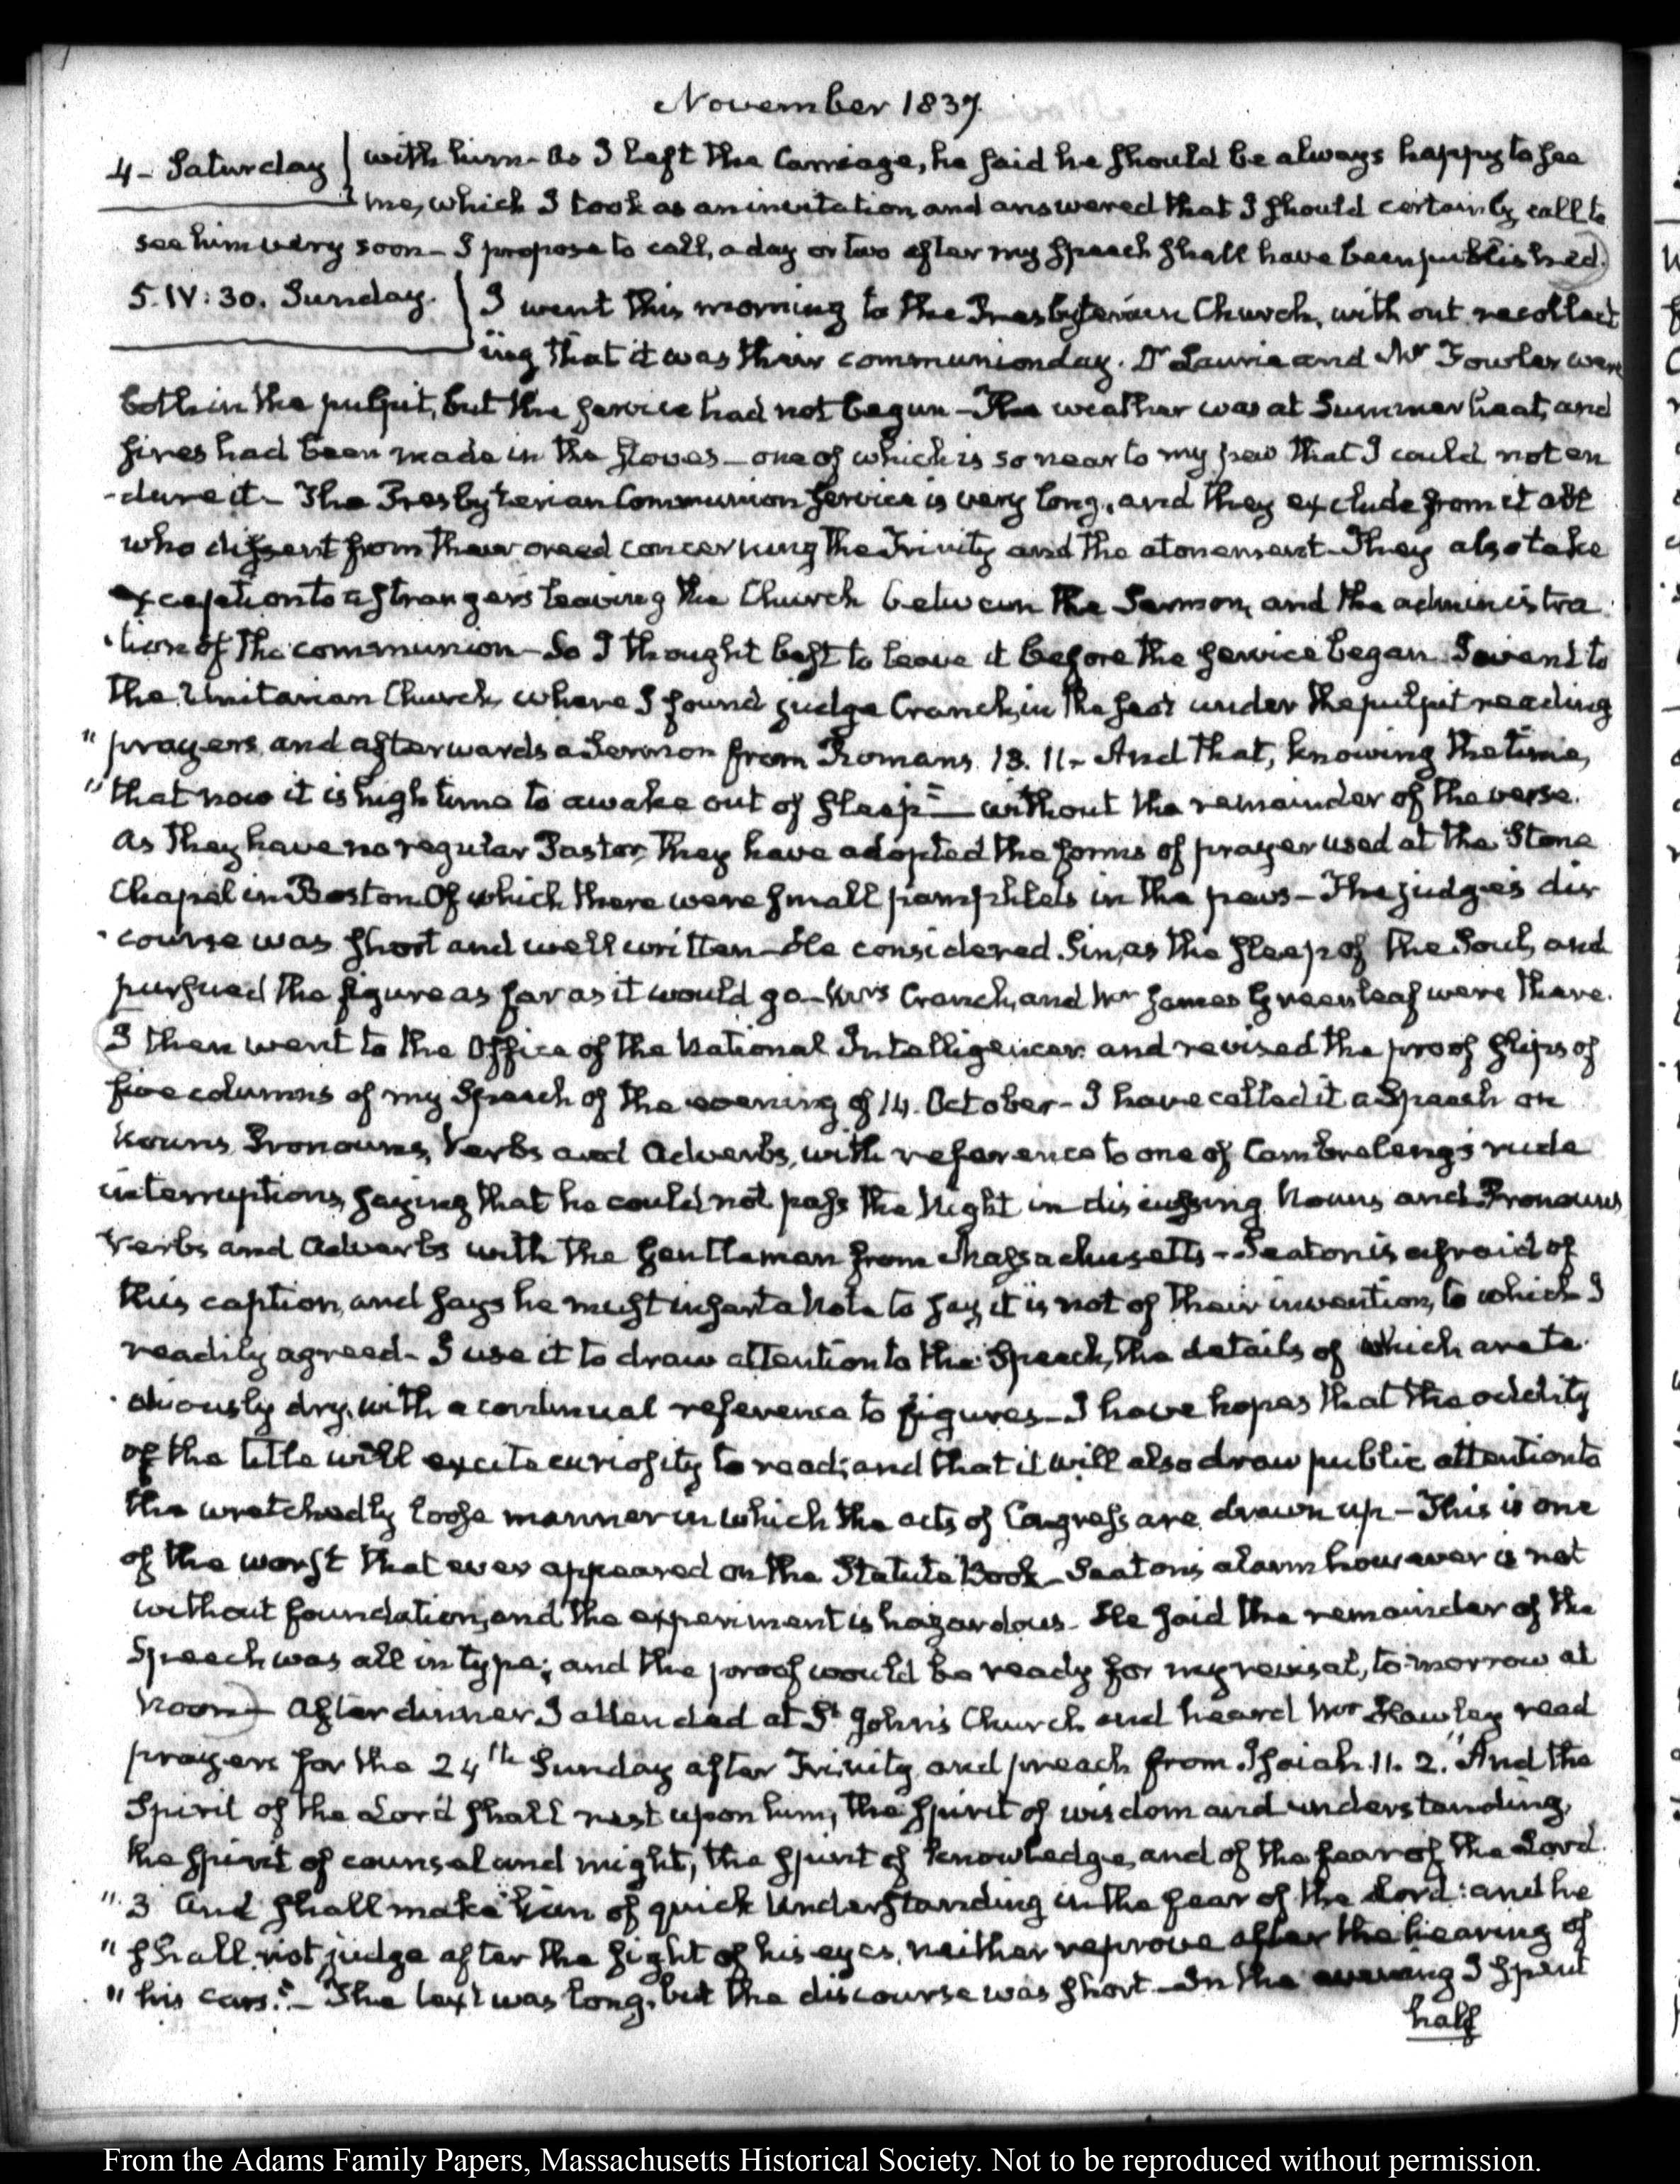 November 1837.
4 - Saturday
with him - As I left the Carriage, he said he should be always happy to see
me, which I took as an invitation, and answered that I should certainly call to
see him very soon - I propose to call, a day or two after my speech shall have been published.
5. IV: 30. Sunday.
I went this morning to the Presbyterian Church, without recollect
ing that it was their communion day. Dr Laurie and Mr Fowler were
both in the pulpit, but the service had not begun - The weather was at Summer heat, and
fires had been made in the stoves - one of which is so near to my pew that I could not en
-dure it - The Presbyterian Communion service is very long, and they exclude from it all
who dissent from their creed concerning the Trinity and the atonement - They also take
exception to a strangers leaving the Church between the Sermon, and the administra
-tion of the communion - So I thought best to leave it before the service began I went to
the Unitarian Church, where I found judge Cranch, in the seat under the pulpit reading
" prayers, and afterwards a Sermon from Romans. 13. 11 - And that, knowing the time,
" that now it is high time to awake out of sleep" - without the remainder of the verse.
As they have no regular Pastor, they have adopted the forms of prayer used at the Stone
Chapel in Boston Of which there were small pamphlets in the pews - The judge's dis
-course was short and well written - He considered Sin, as the sleep of the Soul, and
pursued the figure as far as it would go - Mrs Cranch, and Mr James Greenleaf were there.
I then went to the Office of the National Intelligencer and revised the proof slips of
five columns of my Speech of the evening of 14. October - I have called it a Speech on
Nouns, Pronouns, Verbs and Adverbs, with reference to one of Cambreleng's rude
interruptions, saying that he could not pass the Night in discussing Nouns and Pronouns
Verbs and Adverbs with the gentleman from Massachusetts - Seaton is afraid of
this caption, and says he must insert a Note to say it is not of their invention, to which I
readily agreed - I use it to draw attention to the Speech, the details of which are te
-diously dry, with a continual reference to figures - I have hopes that the oddity
of the title will excite curiosity to read; and that it will also draw public attention to
the wretchedly loose manner in which the acts of Congress are drawn up - This is one
of the worst that ever appeared on the Statute Book - Seaton's alarm however is not
without foundation, and the experiment is hazardous - He said the remainder of the
Speech was all in type; and the proof would be ready for my revisal, to-morrow at
Noon - After dinner I attended at St John's Church and heard Mr Hawley read
prayers for the 24th Sunday after Trinity and preach from Isaiah 11. 2. "And the
Spirit of the Lord shall rest upon him, the spirit of wisdom and understanding,
the spirit of counsel and might, the spirit of knowledge, and of the fear of the Lord.
" 3 And shall make him of quick understanding in the fear of the Lord: and he
" shall not judge after the sight of his eyes, neither reprove after the hearing of
" his ears." - The text was long, but the discourse was short - In the evening I spent
half
From the Adams Family Papers, Massachusetts Historical Society. Not to be reproduced without permission.